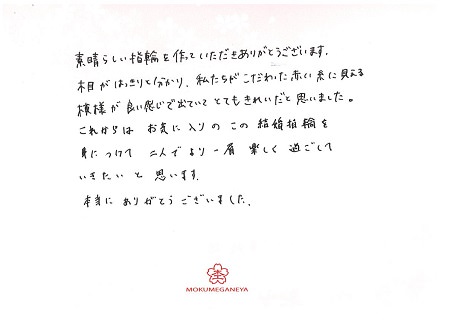 素晴らしい指輪を作っていただきありがとうございます。
木目がはっきりと分かり、私たちがこだわった赤い糸に見える
模様が良い感じで出ていてとてもきれいだと思いました。
これからは お気に入りの この 結婚指輪を
身につけて 二人で より一層 楽しく 過ごして
いきたい と 思います。
本当に ありがとう ございました。
MOKUMEGANEYA